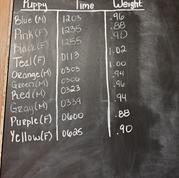 Puppy Time Weight
Blue (M) 1203 .96
Pink(F) 1235 .88
Black(F) 1255 .90
Teal(F) 0113 1.02
Orange(M) 0303 1.00
Green(M) 0306 .94
Red(M) 0323 .96
Gray(M) 0339 .94
Purple(F) 0600 .88
Yellow(F) 0625 .90